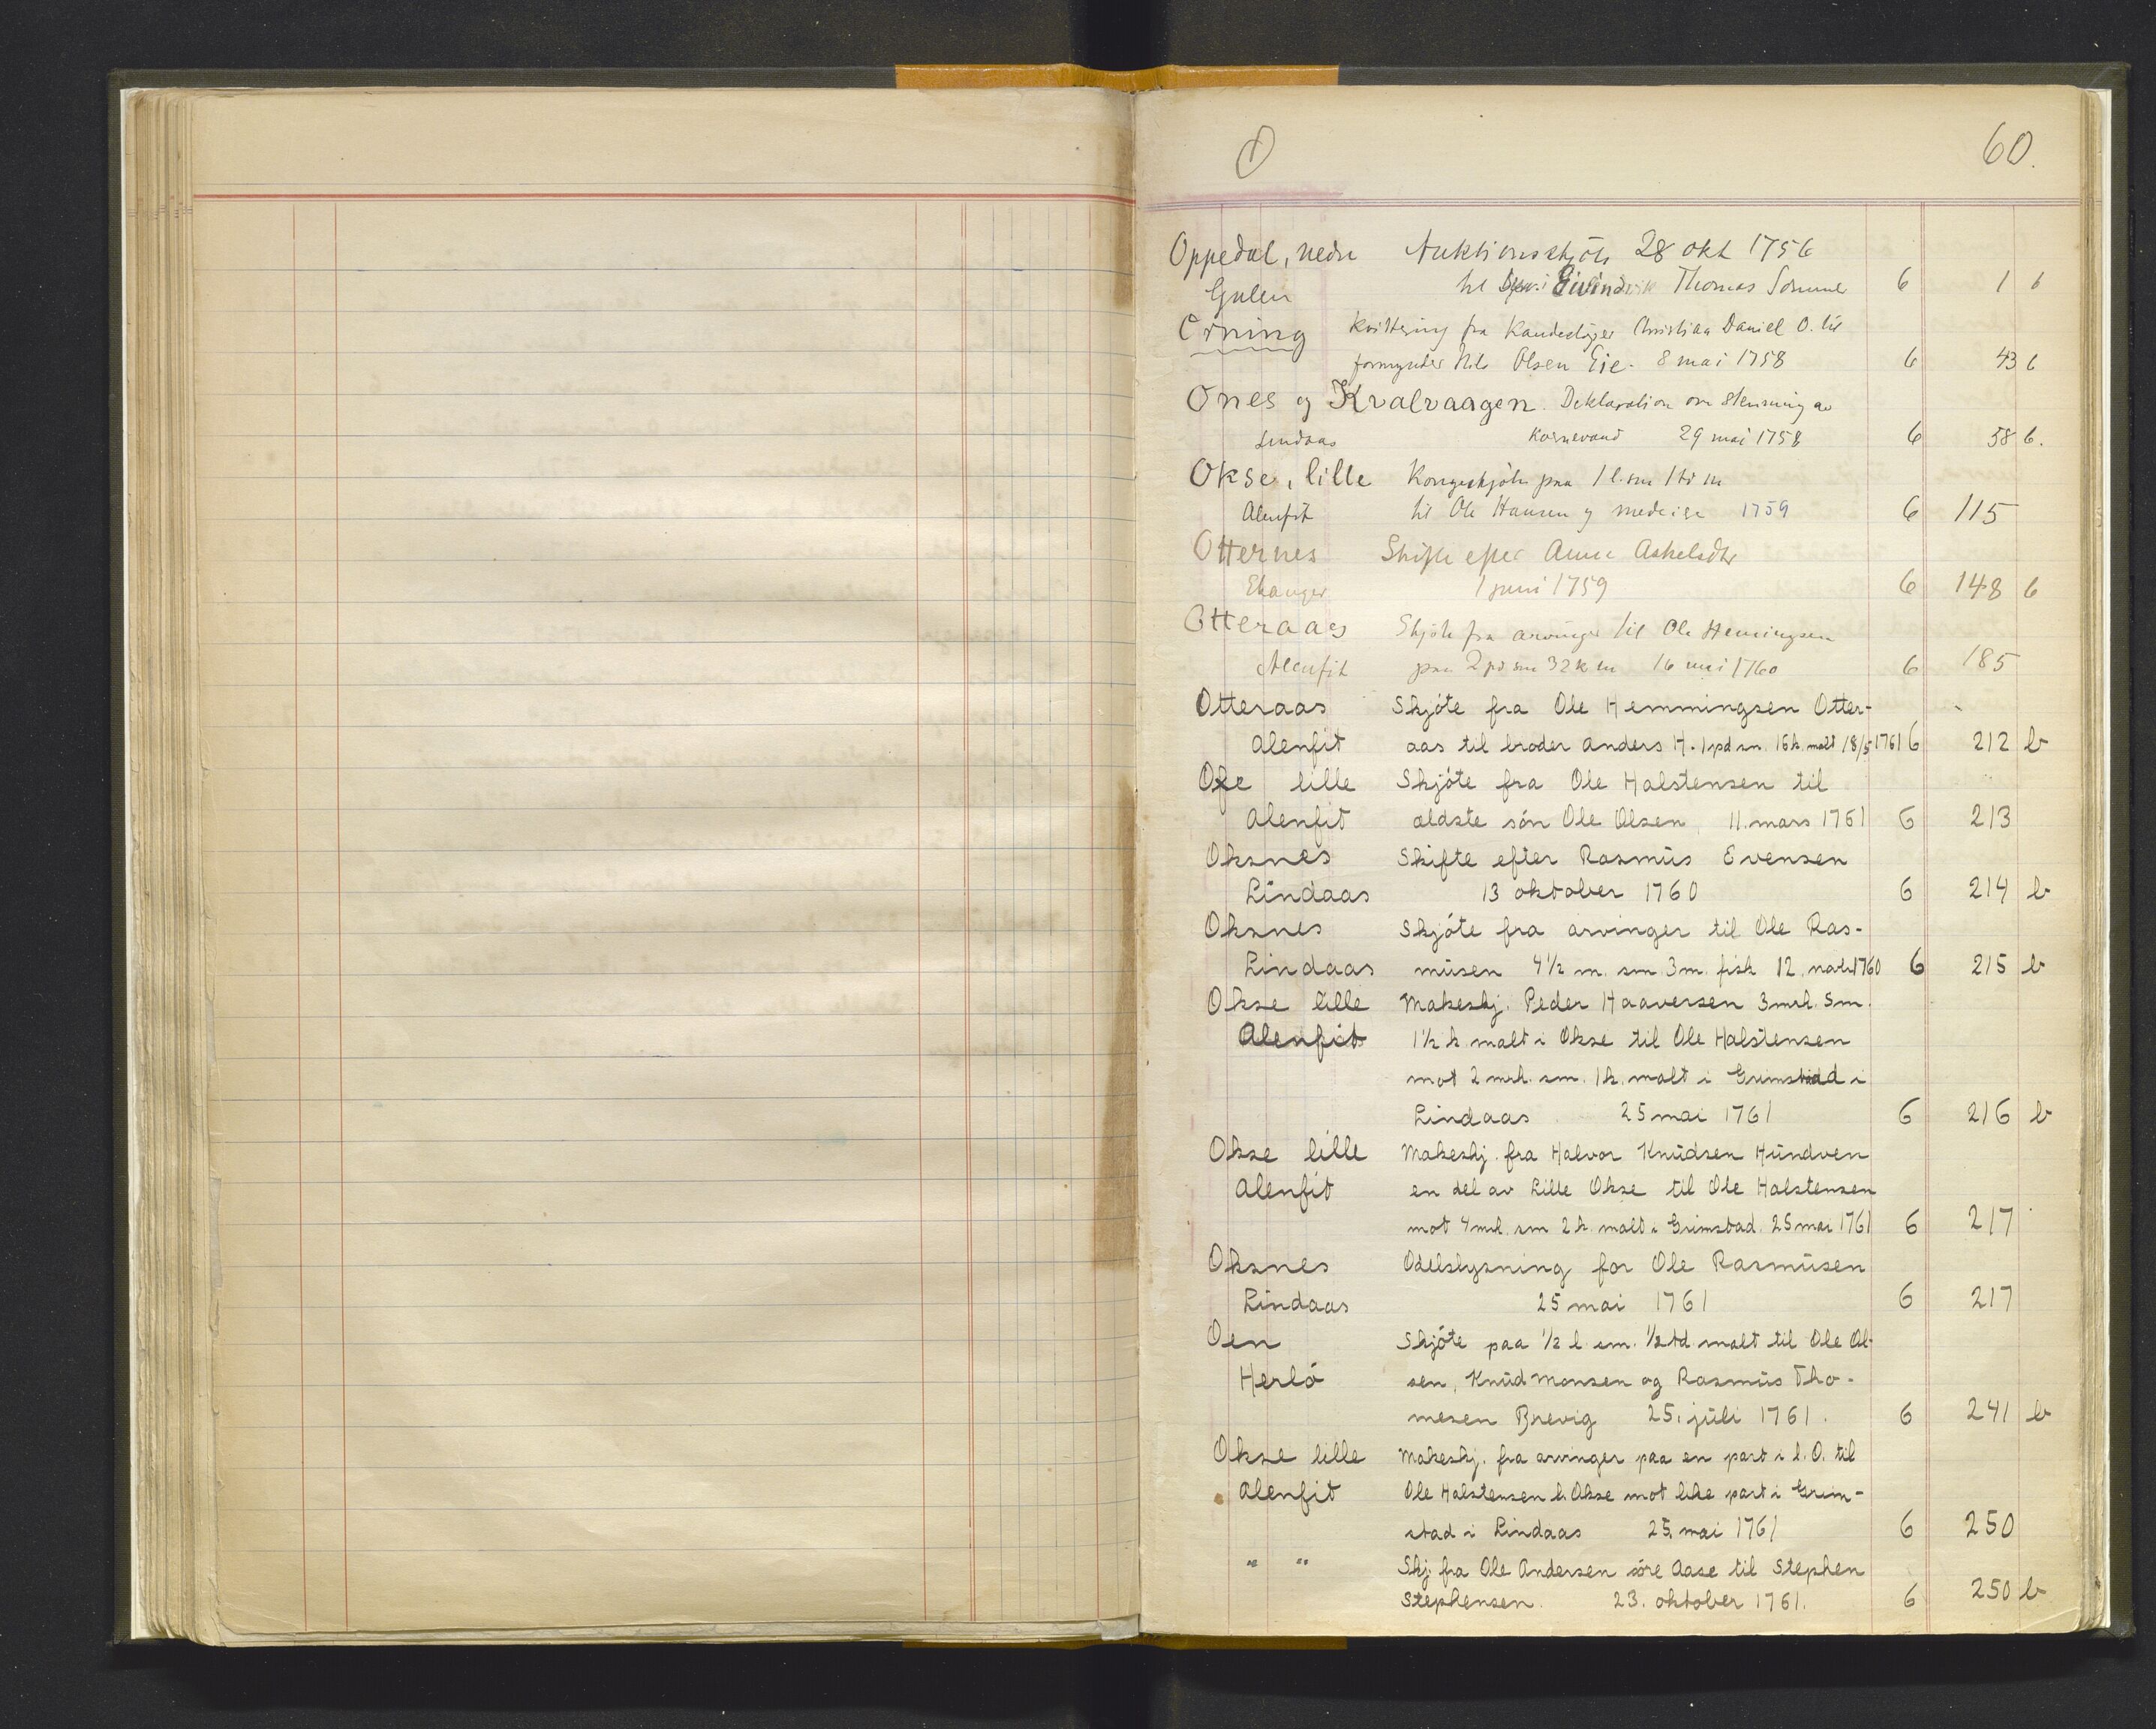 O 60.
Oppedal, nedre Auktionsskjöte 28 okt 1756
Gulen til i Eivindvik Thomas 6 1 b
Örning Kvittering fra Kandestöper Christian Daniel O. til
formynder Nils Olsen Eie. 8 mai 1758 6 43 b
Ones og Kvalvaagen. Deklaration om stemning av
Lindaas Kornevand 29 mai 1758 6 58 b.
Okse, lille Kongeskjöte paa 1 l. sm 1 td m
Alenfit til Ole Hansen og medeier 1759 6 115
Otternes Skifte efter Anne Askelsdtr
Ekanger 1 juni 1759 6 148 b
Otteraas Skjöte fra arvinger til Ole Hemingsen
Alenfit paa 2 pd sm 32 k m 16 mai 1760 6 185
Otteraas Skjöte fra Ole Hemmingsen Otter-
Alenfit aas til broder Anders H. 1 pd sm. 16 k. malt 18/5 1761 6 212 b
Oxe lille Skjöte fra Ole Halstensen til
Alenfit ældste sön Ole Olsen, 11. mars 1761 6 213
Oksnes Skifte efter Rasmus Evensen
Lindaas 13 oktober 1760 6 214 b
Oksnes Skjöte fra arvinger til Ole Ras-
Lindaas musen 4½ m. sm. 3 m. fisk 12. 1760 6 215 b
Okse lille Makeskj. Peder Haaversen 3 mrk. Sm.
Alenfit 1½ k malt i Okse til Ole Halstensen
mot 2 mrk. sm. 1 k. malt i Grimstad i
Lindaas 25 mai 1761 6 216 b
Okse lille Makeskj. fra Halvor Knudsen Hundven
Alenfit en del av Lille Okse til Ole Halstensen
mot 4 mrk. sm 2 k. malt i Grimstad. 25 mai 1761 6 217
Oksnes Odelslysning for Ole Rasmusen
Lindaas 25 mai 1761 6 217
Oen Skjöte paa ½ l. sm. ½ td malt til Ole Ol-
Herlö sen, Knud Monsen og Rasmus Tho-
mesen Brevig 25. juli 1761. 6 241 b
Okse lille Makeskj. fra arvinger paa en part i l. O. til
Alenfit Ole Halstensen l. Okse mot like part i Grim-
stad i Lindaas 25. mai 1761 6 250
" " Skj. fra Ole Andersen söre Aase til Stephen
Stephensen. 23. oktober 1761. 6 250 b